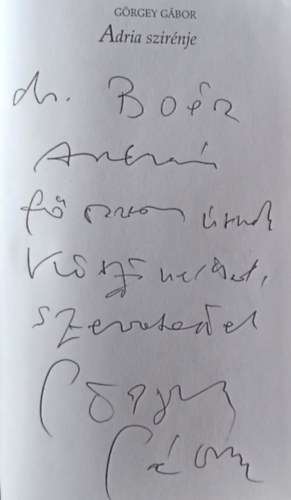 GÖRGEY GÁBOR
Adria szirénje
dr. Boér
András
főorvos úrnak
köszönettel,
szeretettel
Görgey
Gábor